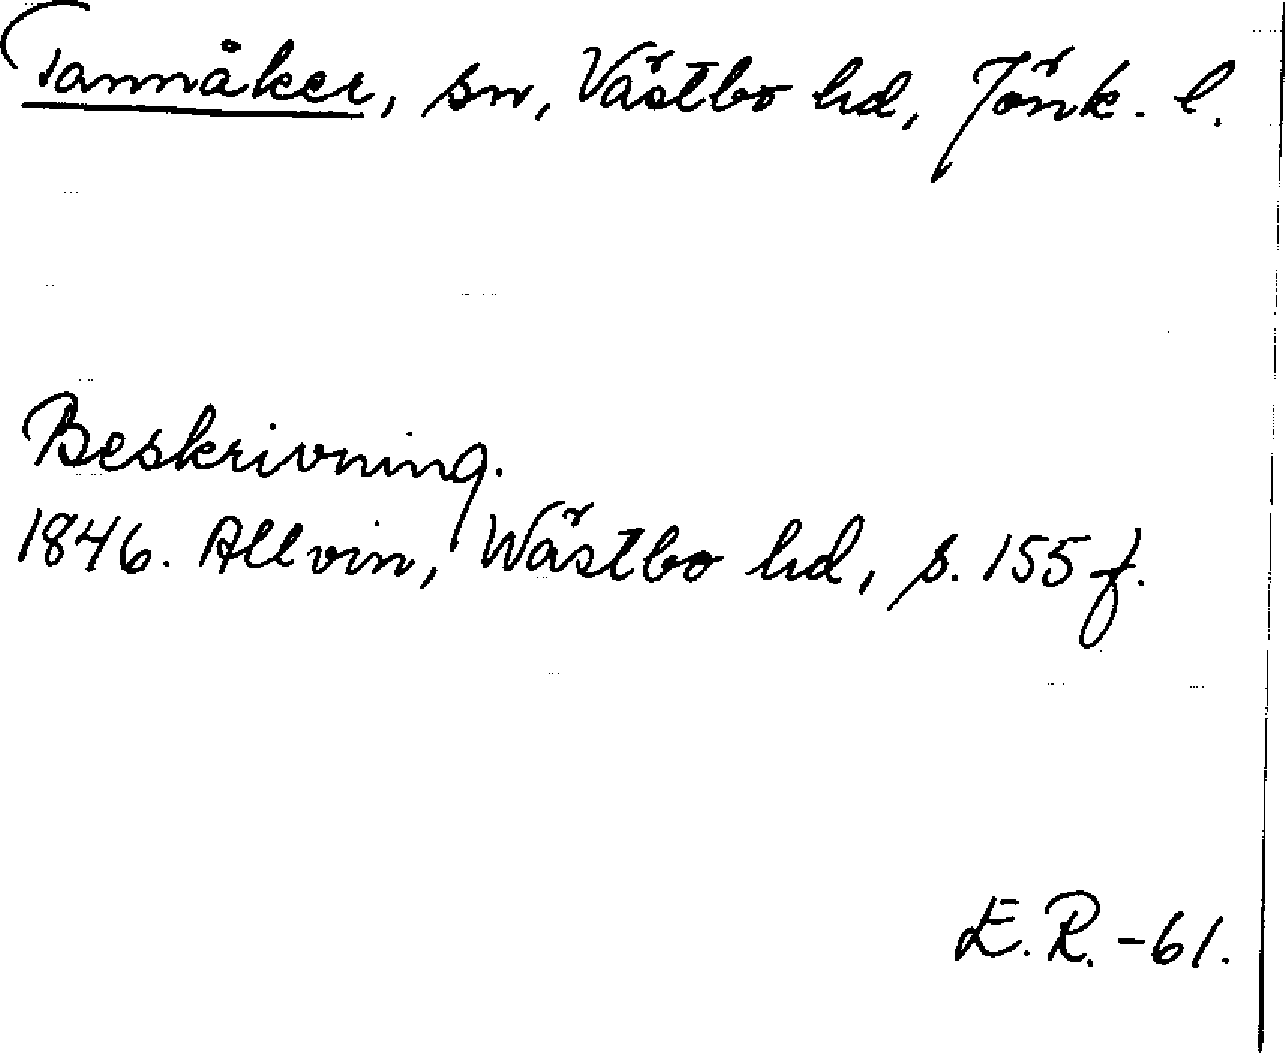 Tannåker, sn, Västbo hd, Jönk. l.
Beskrivning.
1846. Allvin, Wästbo hd, s. 155 f.
E.R. -61.